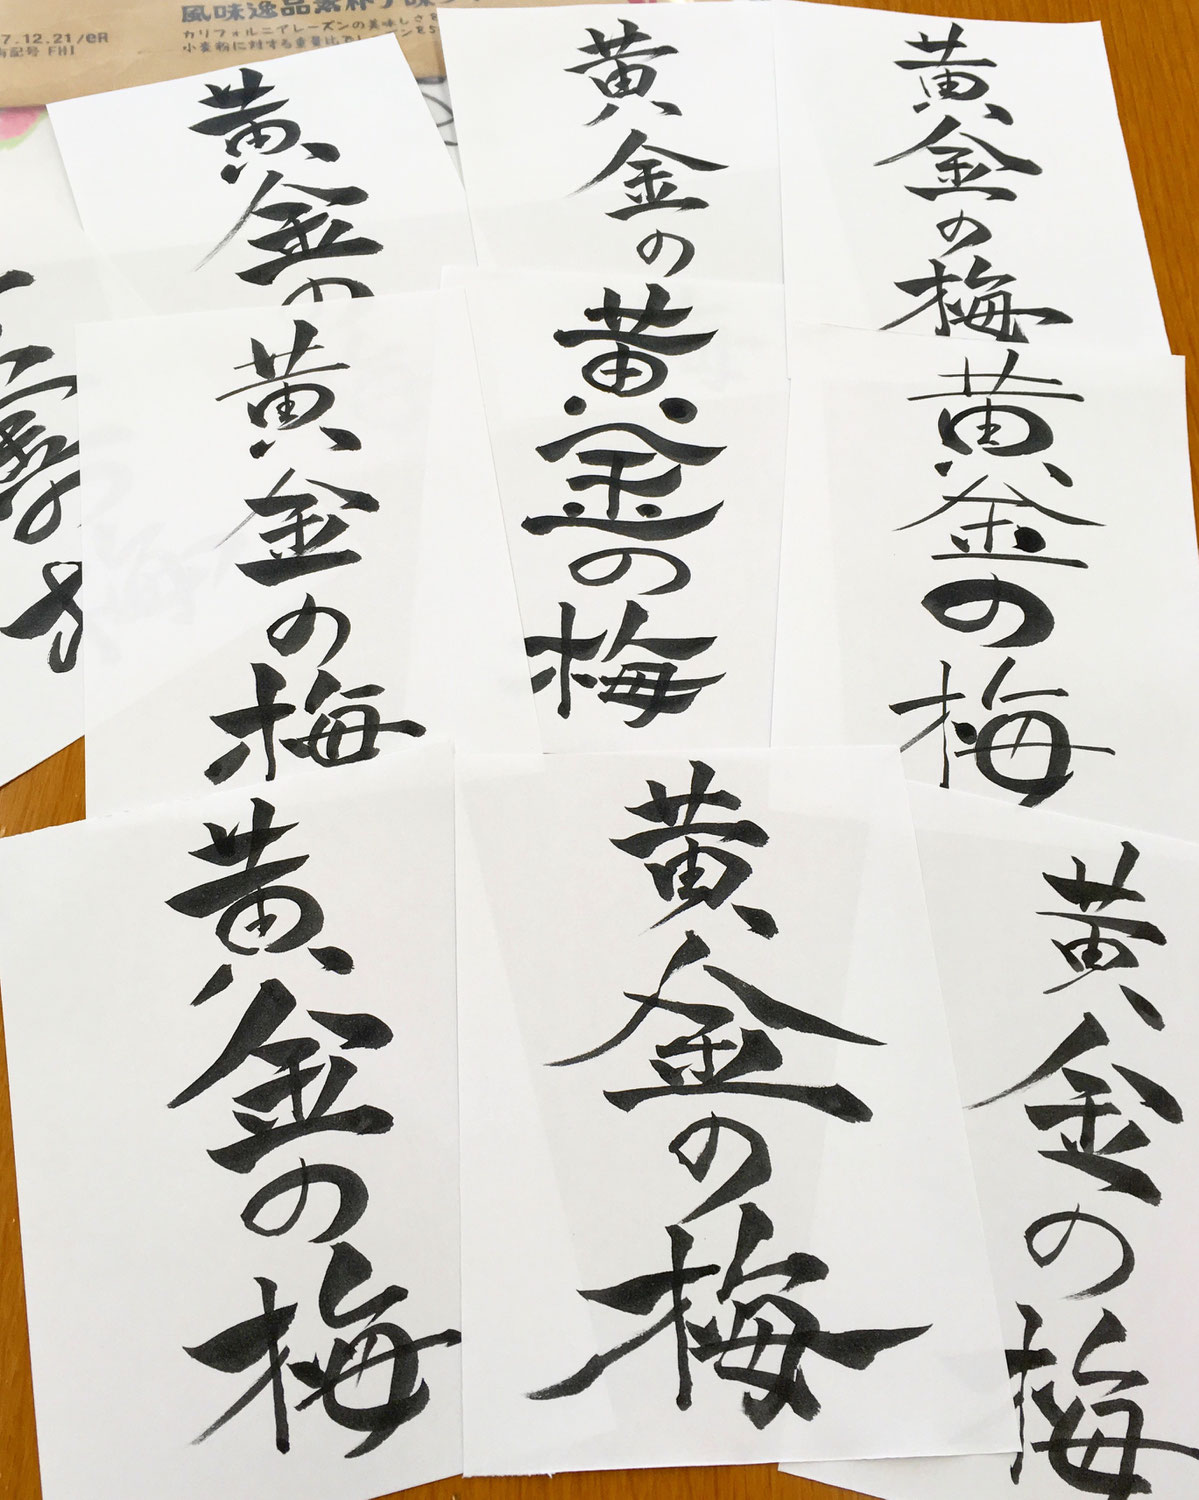 風味逸品素朴
カリフォルニアレーズンの美味しさを
小麦粉に対する重量比でレーズンを5
7.12.21/eR
有記号 FHI
黄金の
黄金の
黄金の梅
黄金の梅
黄金の梅
黄金の梅
黄金の梅
黄金の梅
黄金の梅